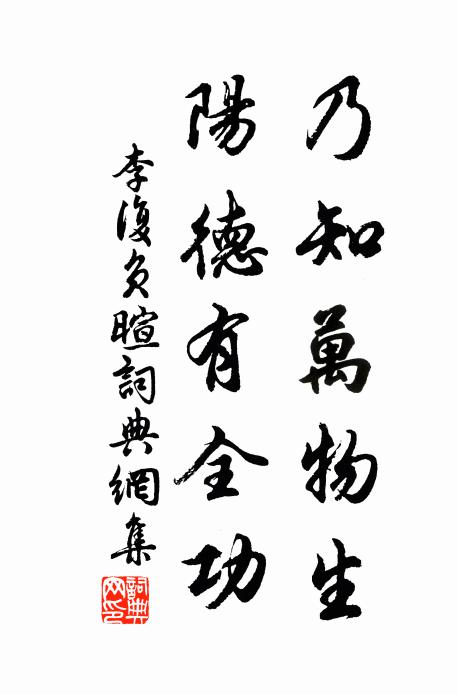 乃知萬物生
陽德有全功
李復負暄詞典網集
詞典網印